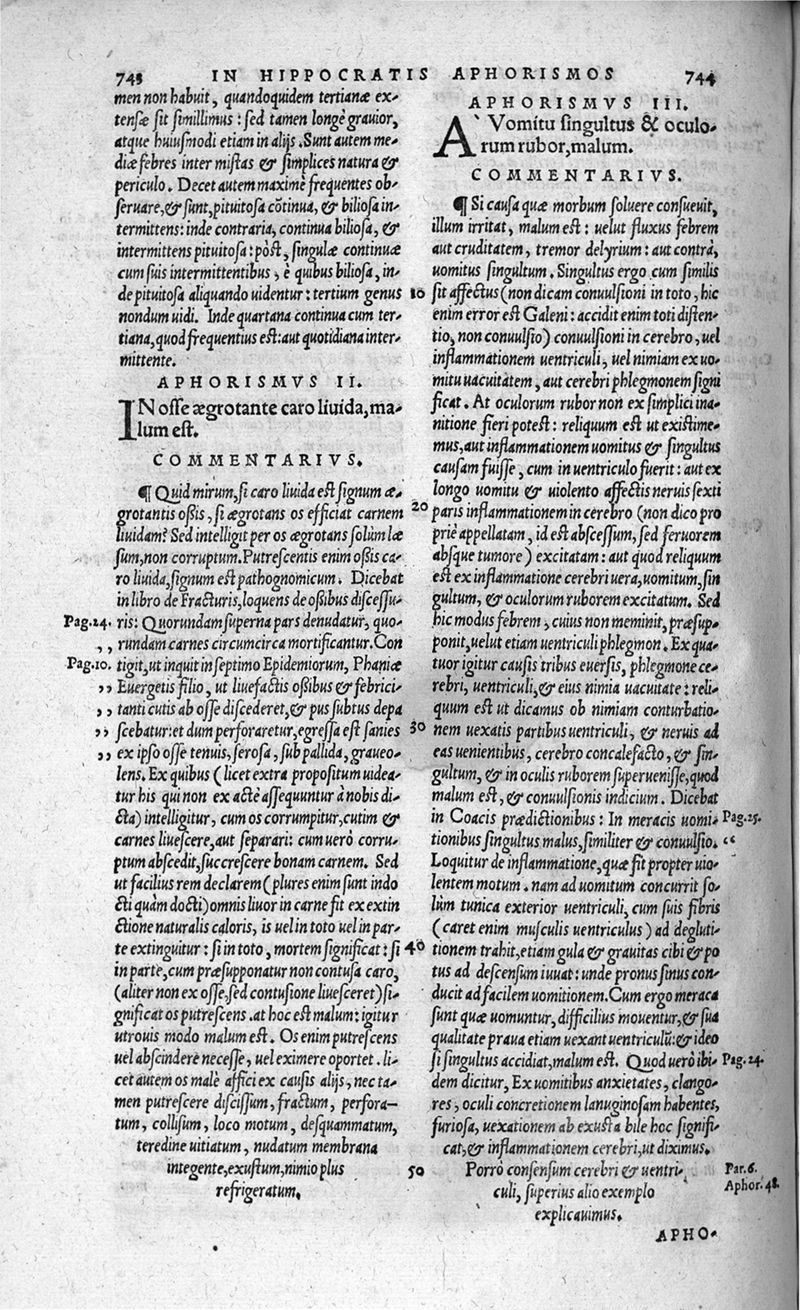 743 IN HIPPOCRATIS APHORISMOS 744
men non habuit, quandoquidem tertianæ ex-
tensæ sit simillimus: sed tamen longè grauior,
atque huiusmodi etiam in alijs. Sunt autem me-
diæ febres inter mistas & simplices natura &
periculo. Decet autem maximè frequentes ob-
seruare, & sunt, pituitosa cōtinua, & biliosa in-
termittens: inde contraria, continua biliosa, &
intermittens pituitosa: pòst, singulæ continuæ
cum suis intermittentibus, è quibus biliosa, in-
de pituitosa aliquando uidentur: tertium genus
nondum uidi. Inde quartana continua cum ter-
tiana, quod frequentius est: aut quotidiana inter-
mittente.
APHORISMVS II.
IN osse ægrotante caro liuida, ma-
lum est.
COMMENTARIVS.
¶ Quid mirum, si caro liuida est signum æ-
grotantis ossis, si ægrotans os efficiat carnem
liuidam? Sed intelligit per os ægrotans solùm læ
sum, non corruptum. Putrescentis enim ossis ca-
ro liuida, signum est pathognomicum. Dicebat
in libro de Fracturis, loquens de ossibus discessu-
Pag. 24. ris: Quorundam superna pars denudatur, quo-
,, rundam carnes circumcirca mortificantur. Con
Pag. 10. tigit, ut inquit in septimo Epidemiorum, Phaniæ
,, Euergetis filio, ut liuefactis ossibus & febrici-
,, tanti cutis ab osse discederet, & pus subtus depa
,, scebatur: et dum perforaretur, egressa est sanies
,, ex ipso osse tenuis, serosa, sub pallida, graueo-
lens. Ex quibus (licet extra propositum uidea-
tur his qui non ex actè assequuntur à nobis di-
cta) intelligitur, cum os corrumpitur, cutim &
carnes liuescere, aut separari: cum uerò corru-
ptum abscedit, succrescere bonam carnem. Sed
ut facilius rem declarem (plures enim sunt indo
cti quàm docti) omnis liuor in carne fit ex extin
ctione naturalis caloris, is uel in toto uel in par-
te extinguitur: si in toto, mortem significat: si
in parte, cum præsupponatur non contusa caro,
(aliter non ex osse, sed contusione liuesceret) si-
gnificat os putrescens. at hoc est malum: igitur
utrouis modo malum est. Os enim putrescens
uel abscindere necesse, uel eximere oportet. li-
cet autem os malè affici ex causis alijs, nec ta-
men putrescere discissum, fractum, perfora-
tum, collisum, loco motum, desquammatum,
teredine uitiatum, nudatum membrana
integente, exustum, nimio plus
refrigeratum.
APHORISMVS III.
A Vomitu singultus & oculo-
rum rubor, malum.
COMMENTARIVS.
¶ Si causa quæ morbum soluere consueuit,
illum irritat, malum est: uelut fluxus febrem
aut cruditatem, tremor delyrium: aut contrà,
uomitus singultum. Singultus ergo cum similis
10 sit affectus (non dicam conuulsioni in toto, hic
enim error est Galeni: accidit enim toti disten-
tio, non conuulsio) conuulsioni in cerebro, uel
inflammationem uentriculi, uel nimiam ex uo-
mitu uacuitatem, aut cerebri phlegmonem signi
ficat. At oculorum rubor non ex simplici ina-
nitione fieri potest: reliquum est ut existime-
mus, aut inflammationem uomitus & singultus
causam fuisse, cum in uentriculo fuerit: aut ex
longo uomitu & uiolento affectis neruis sexti
20 paris inflammationem in cerebro (non dico pro
priè appellatam, id est abscessum, sed feruorem
absque tumore) excitatam: aut quod reliquum
est ex inflammatione cerebri uera, uomitum, sin
gultum, & oculorum ruborem excitatum. Sed
hic modus febrem, cuius non meminit, præsup-
ponit, uelut etiam uentriculi phlegmon. Ex qua-
tuor igitur causis tribus euersis, phlegmone ce-
rebri, uentriculi, & eius nimia uacuitate: reli-
quum est ut dicamus ob nimiam conturbatio-
30 nem uexatis partibus uentriculi, & neruis ad
eas uenientibus, cerebro concalefacto, & sin-
gultum, & in oculis ruborem superuenisse, quod
malum est, & conuulsionis indicium. Dicebat
in Coacis prædictionibus: In meracis uomi- Pag. 25.
tionibus singultus malus, similiter & conuulsio. “
Loquitur de inflammatione, quæ fit propter uio-
lentem motum. nam ad uomitum concurrit so-
lùm tunica exterior uentriculi, cum suis fibris
(caret enim musculis uentriculus) ad degluti-
40 tionem trahit, etiam gula & grauitas cibi & po
tus ad descensum iuuat: unde pronus sinus con-
ducit ad facilem uomitionem. Cum ergo meraca
sunt quæ uomuntur, difficilius mouentur, & sua
qualitate praua etiam uexant uentriculū: & ideo
si singultus accidiat, malum est. Quod uerò ibi- Pag. 24.
dem dicitur, Ex uomitibus anxietates, clango-
res, oculi concretionem lanuginosam habentes,
furiosa, uexationem ab exusta bile hoc signifi-
cat, & inflammationem cerebri, ut diximus.
50 Porrò consensum cerebri & uentri- Par. 6.
culi, superius alio exemplo Aphor. 48.
explicauimus.
APHO-